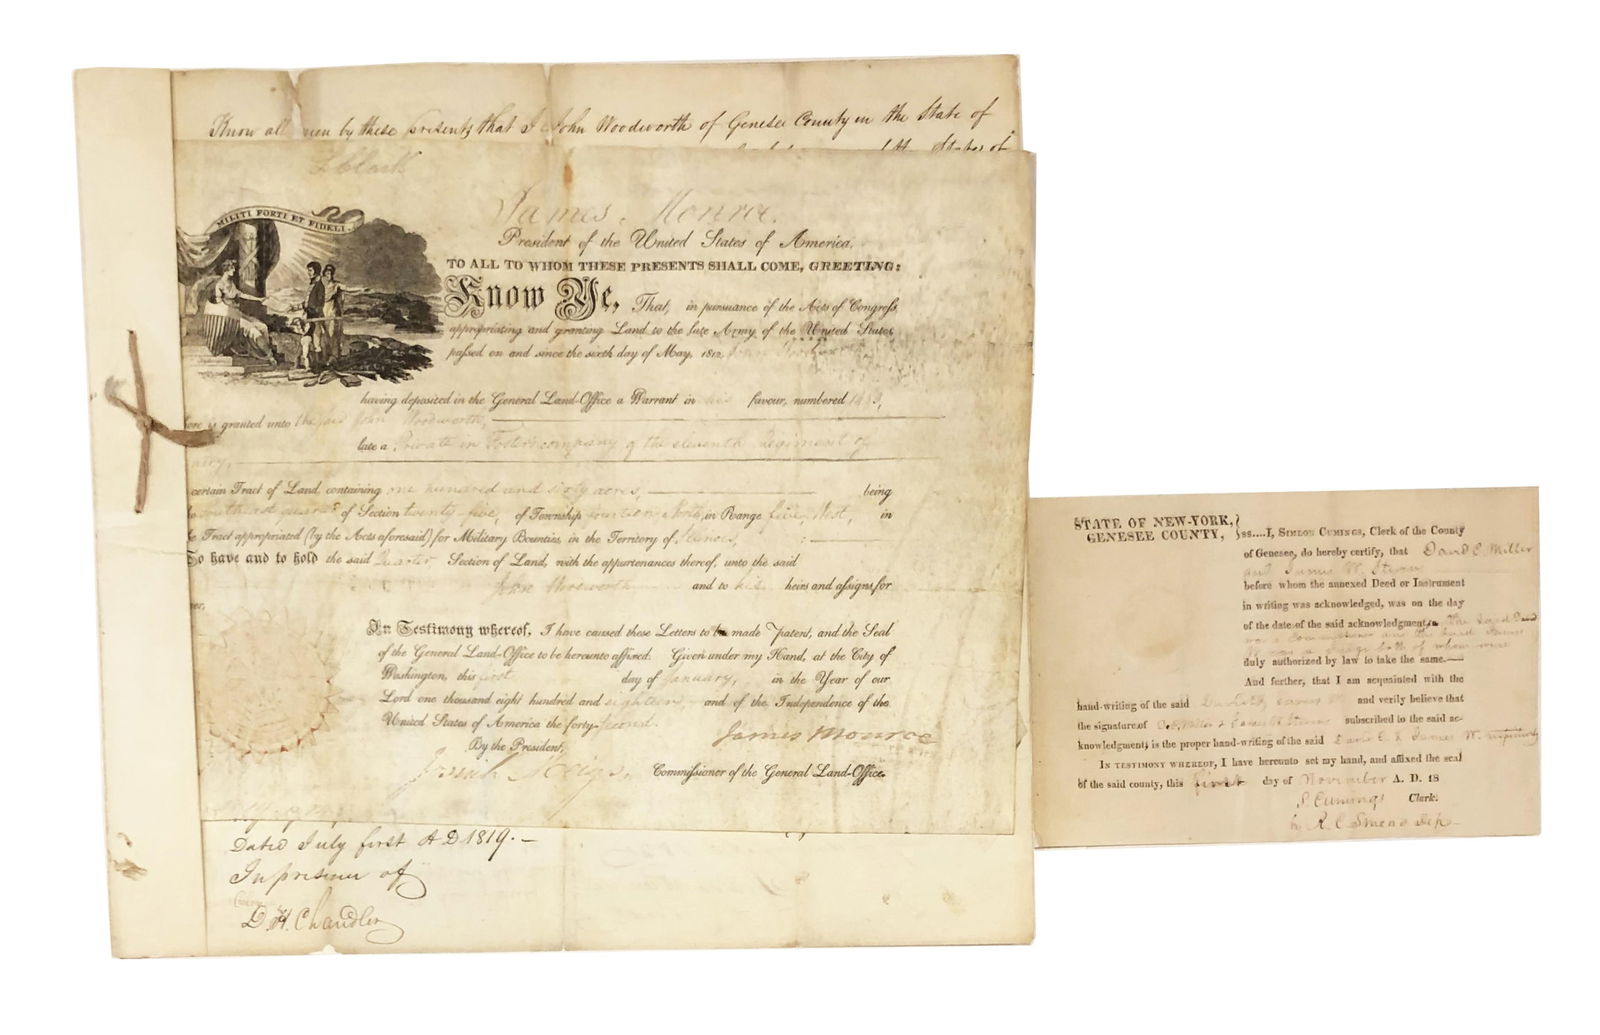 Know all men by these presents that I John Woodworth of Genesee County in the State of
States of
MILITI FORTI ET FIDELI.
James Monroe,
President of the United States of America,
TO ALL TO WHOM THESE PRESENTS SHALL COME, GREETING:
Know Ye, That, in pursuance of the Acts of Congress,
appropriating and granting Land to the late Army of the United States,
passed on and since the sixth day of May, 1812, John Woodworth
having deposited in the General Land-Office a Warrant in his favour, numbered
ere is granted unto the said John Woodworth,
late a Private in Foster's company of the eleventh Regiment of
certain Tract of Land, containing one hundred and sixty acres, being
southeast quarter of Section twenty five, of Township fourteen North, in Range five, West, in
e Tract appropriated (by the Acts aforesaid) for Military Bounties, in the Territory of Illinois,
To have and to hold the said Quarter Section of Land, with the appurtenances thereof, unto the said
John Woodworth and to his heirs and assigns for
er.
In Testimony whereof, I have caused these Letters to be made Patent, and the Seal
of the General Land-Office to be hereunto affixed. Given under my Hand, at the City of
Washington, this first day of January, in the Year of our
Lord one thousand eight hundred and eighteen and of the Independence of the
United States of America the forty-second.
By the President, James Monroe
Josiah Meigs, Commissioner of the General Land-Office.
Dated July first A D 1819.
In presence of
D. H. Chandler
STATE OF NEW-YORK,
GENESEE COUNTY, } ss....I, SIMEON CUMINGS, Clerk of the County
of Genesee, do hereby certify, that David C. Miller
and James W. Steven
before whom the annexed Deed or Instrument
in writing was acknowledged, was on the day
of the date of the said acknowledgment, the said David
was a Commissioner and the said James
W. was a Judge both of whom were
duly authorized by law to take the same.—
And further, that I am acquainted with the
hand-writing of the said David & James W. and verily believe that
the signature of subscribed to the said ac-
knowledgment; is the proper hand-writing of the said David C. & James W. respectively
IN TESTIMONY WHEREOF, I have hereunto set my hand, and affixed the seal
of the said county, this first day of November A. D. 18
S Cumings Clerk.